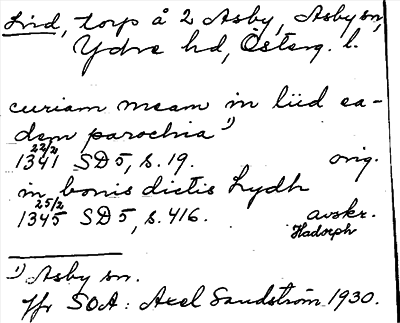 Lind, torp å 2 Asby, Asby sn,
Ydre hd, Österg. l.
curiam meam in liid ea-
dem parochia 1)
22/2
1341 SD5, s. 19. orig.
in bonis dictis Lydh
25/2
1345 SD5, s. 416. avskr.
Hadorph
1) Asby sn.
Jfr SOA: Axel Sandström 1930.